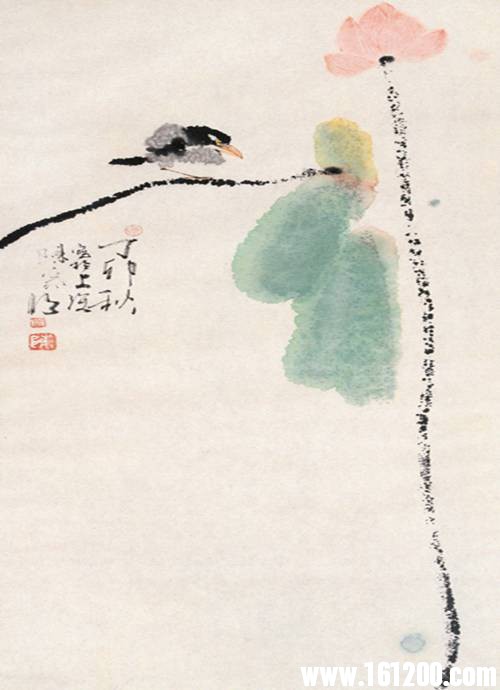 丁卯秋
於上海
陳家泠
www.161200.com